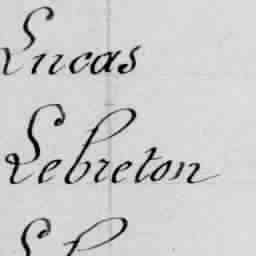 Lucas
Lebreton